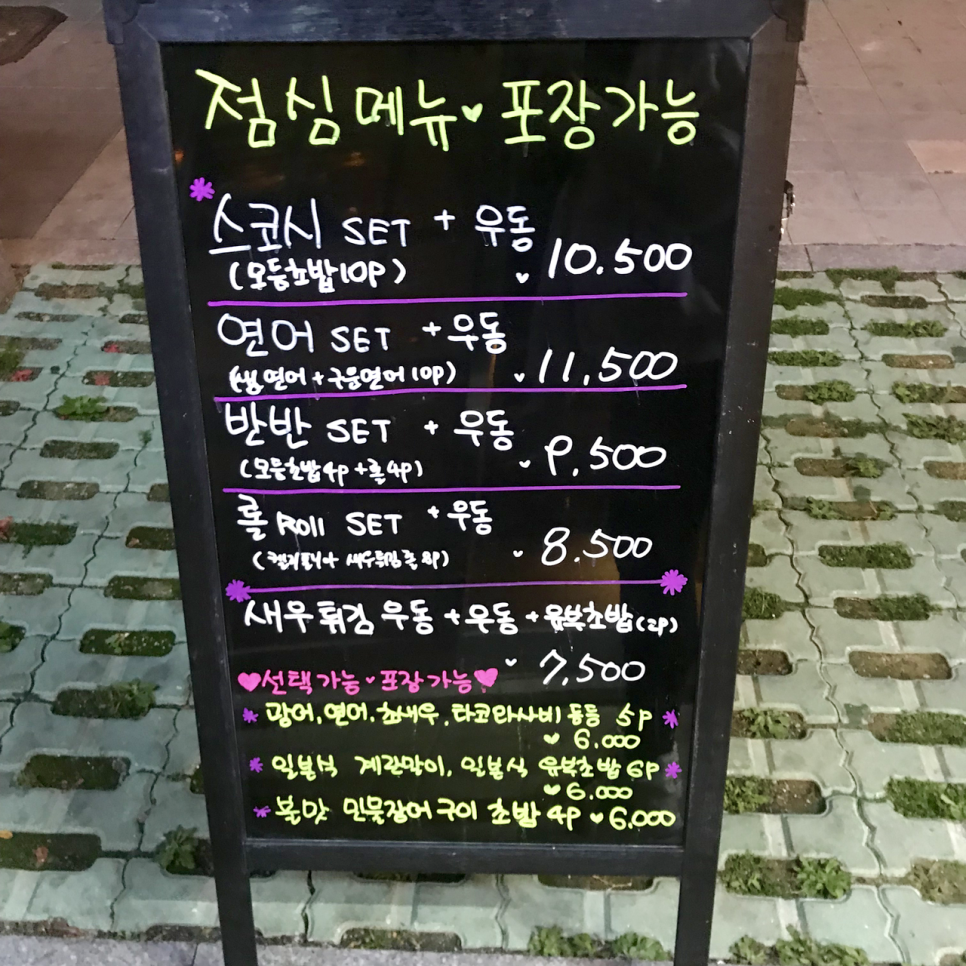 점심메뉴 포장가능
스코시 SET + 우동
(모듬초밥 10P) 10.500
연어 SET + 우동
(생연어 + 구운연어 10P) 11,500
반반 SET + 우동
(모듬초밥 4P + 롤 4P) 9,500
롤 Roll SET + 우동
새우튀김 롤 8P) 8.500
새우튀김 우동 + 우동 + 유부초밥 (2P)
7,500
선택가능 포장가능
광어, 연어, 초새우, 타코와사비 등등 5P
6.000
일본식 계란말이, 일본식 유부초밥 6P
6.000
민물장어구이 초밥 4P 6.000